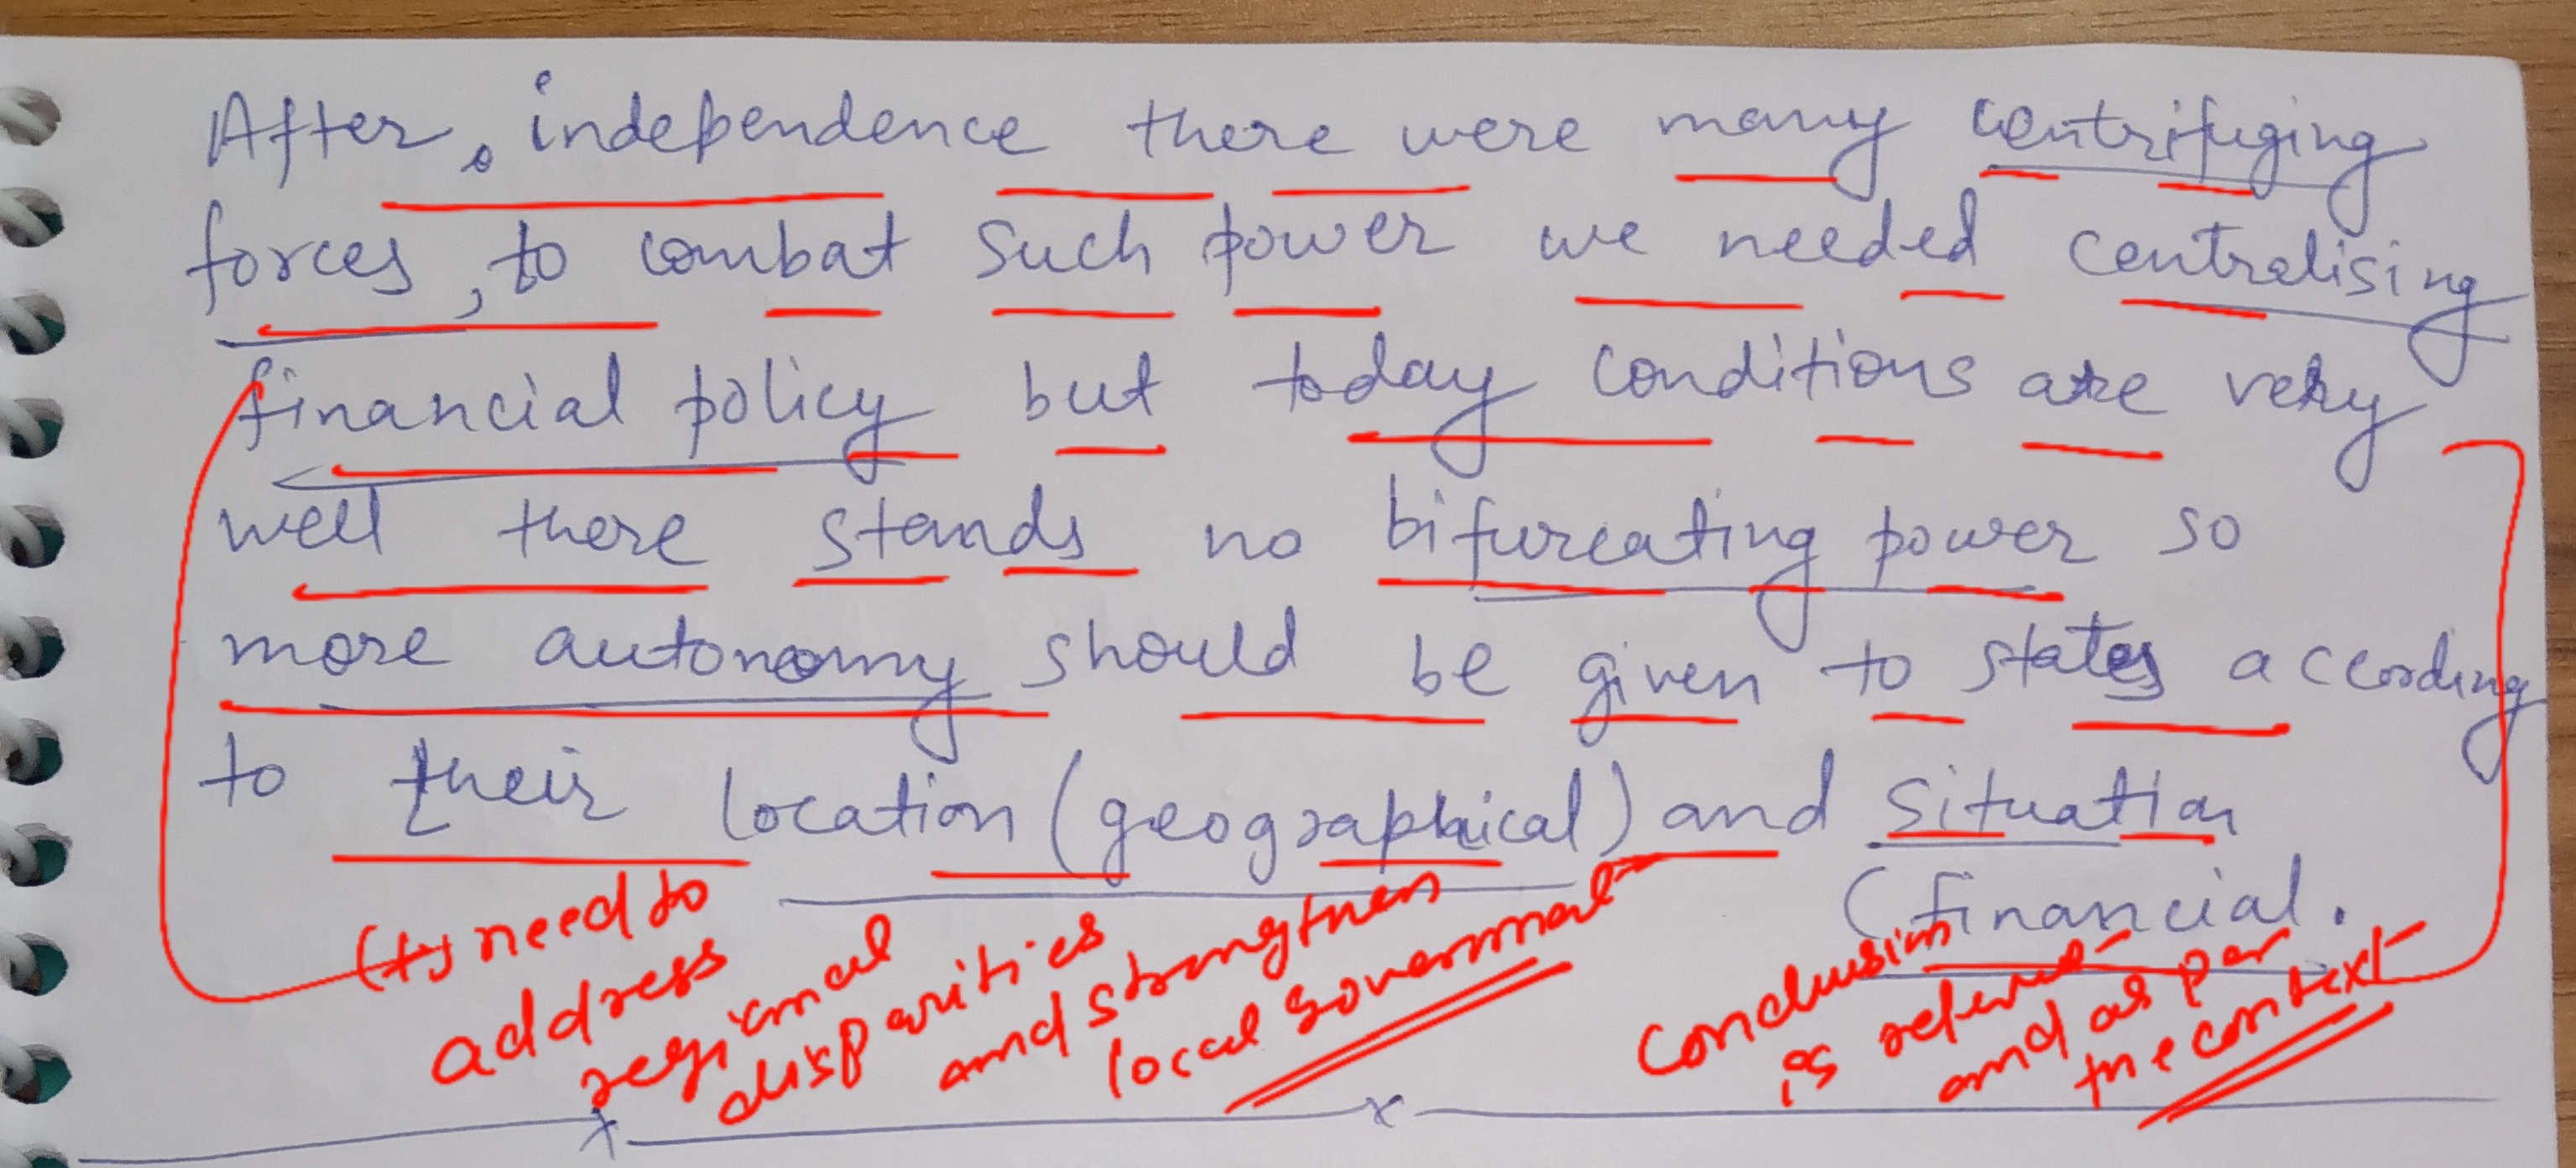 After, independence there were many centrifuging
forces, to combat such power we needed centralising
financial policy but today conditions are very
well there stands no bifurcating power so
more autonomy should be given to states according
to their location (geographical) and situation
(financial.
(+) need to
address
regional
disparities
and strengthen
local Government
Conclusion
is relevant
and as per
the context